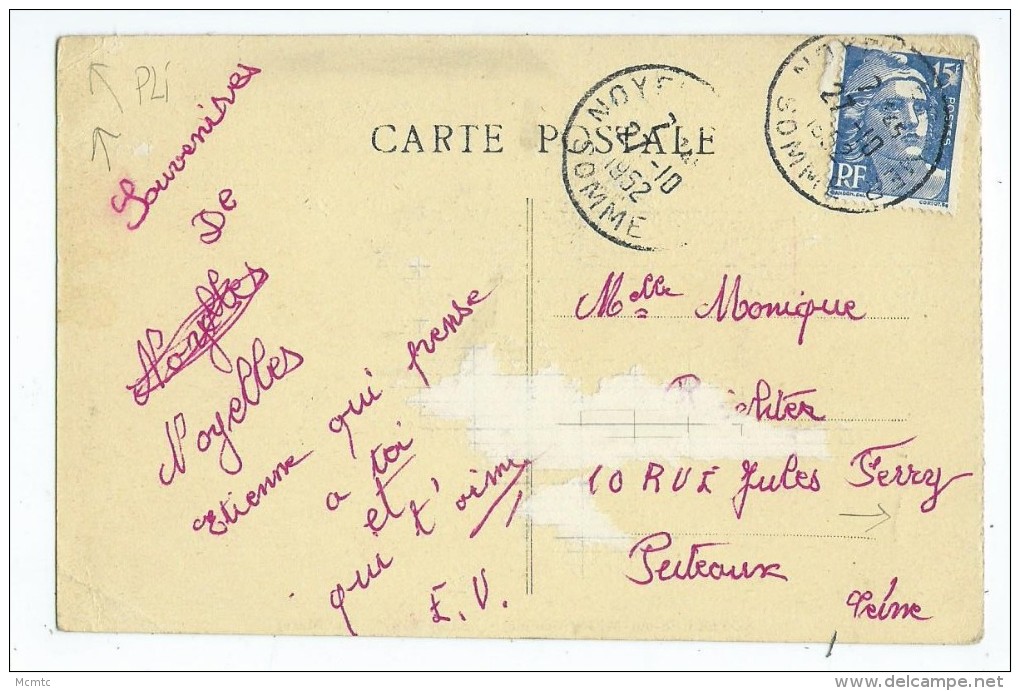 PLi
CARTE POSTALE
NOYE
7
2 -10
1952
SOMME
15F
POSTES
RF
Souvenires
De
Noyelles
Noyelles
Etienne qui pense
a toi
et
qui t'aime
E.V.
Melle Monique
10 RUE Jules Ferry
Puteaux
Seine
Mcmtc
delcampe.net